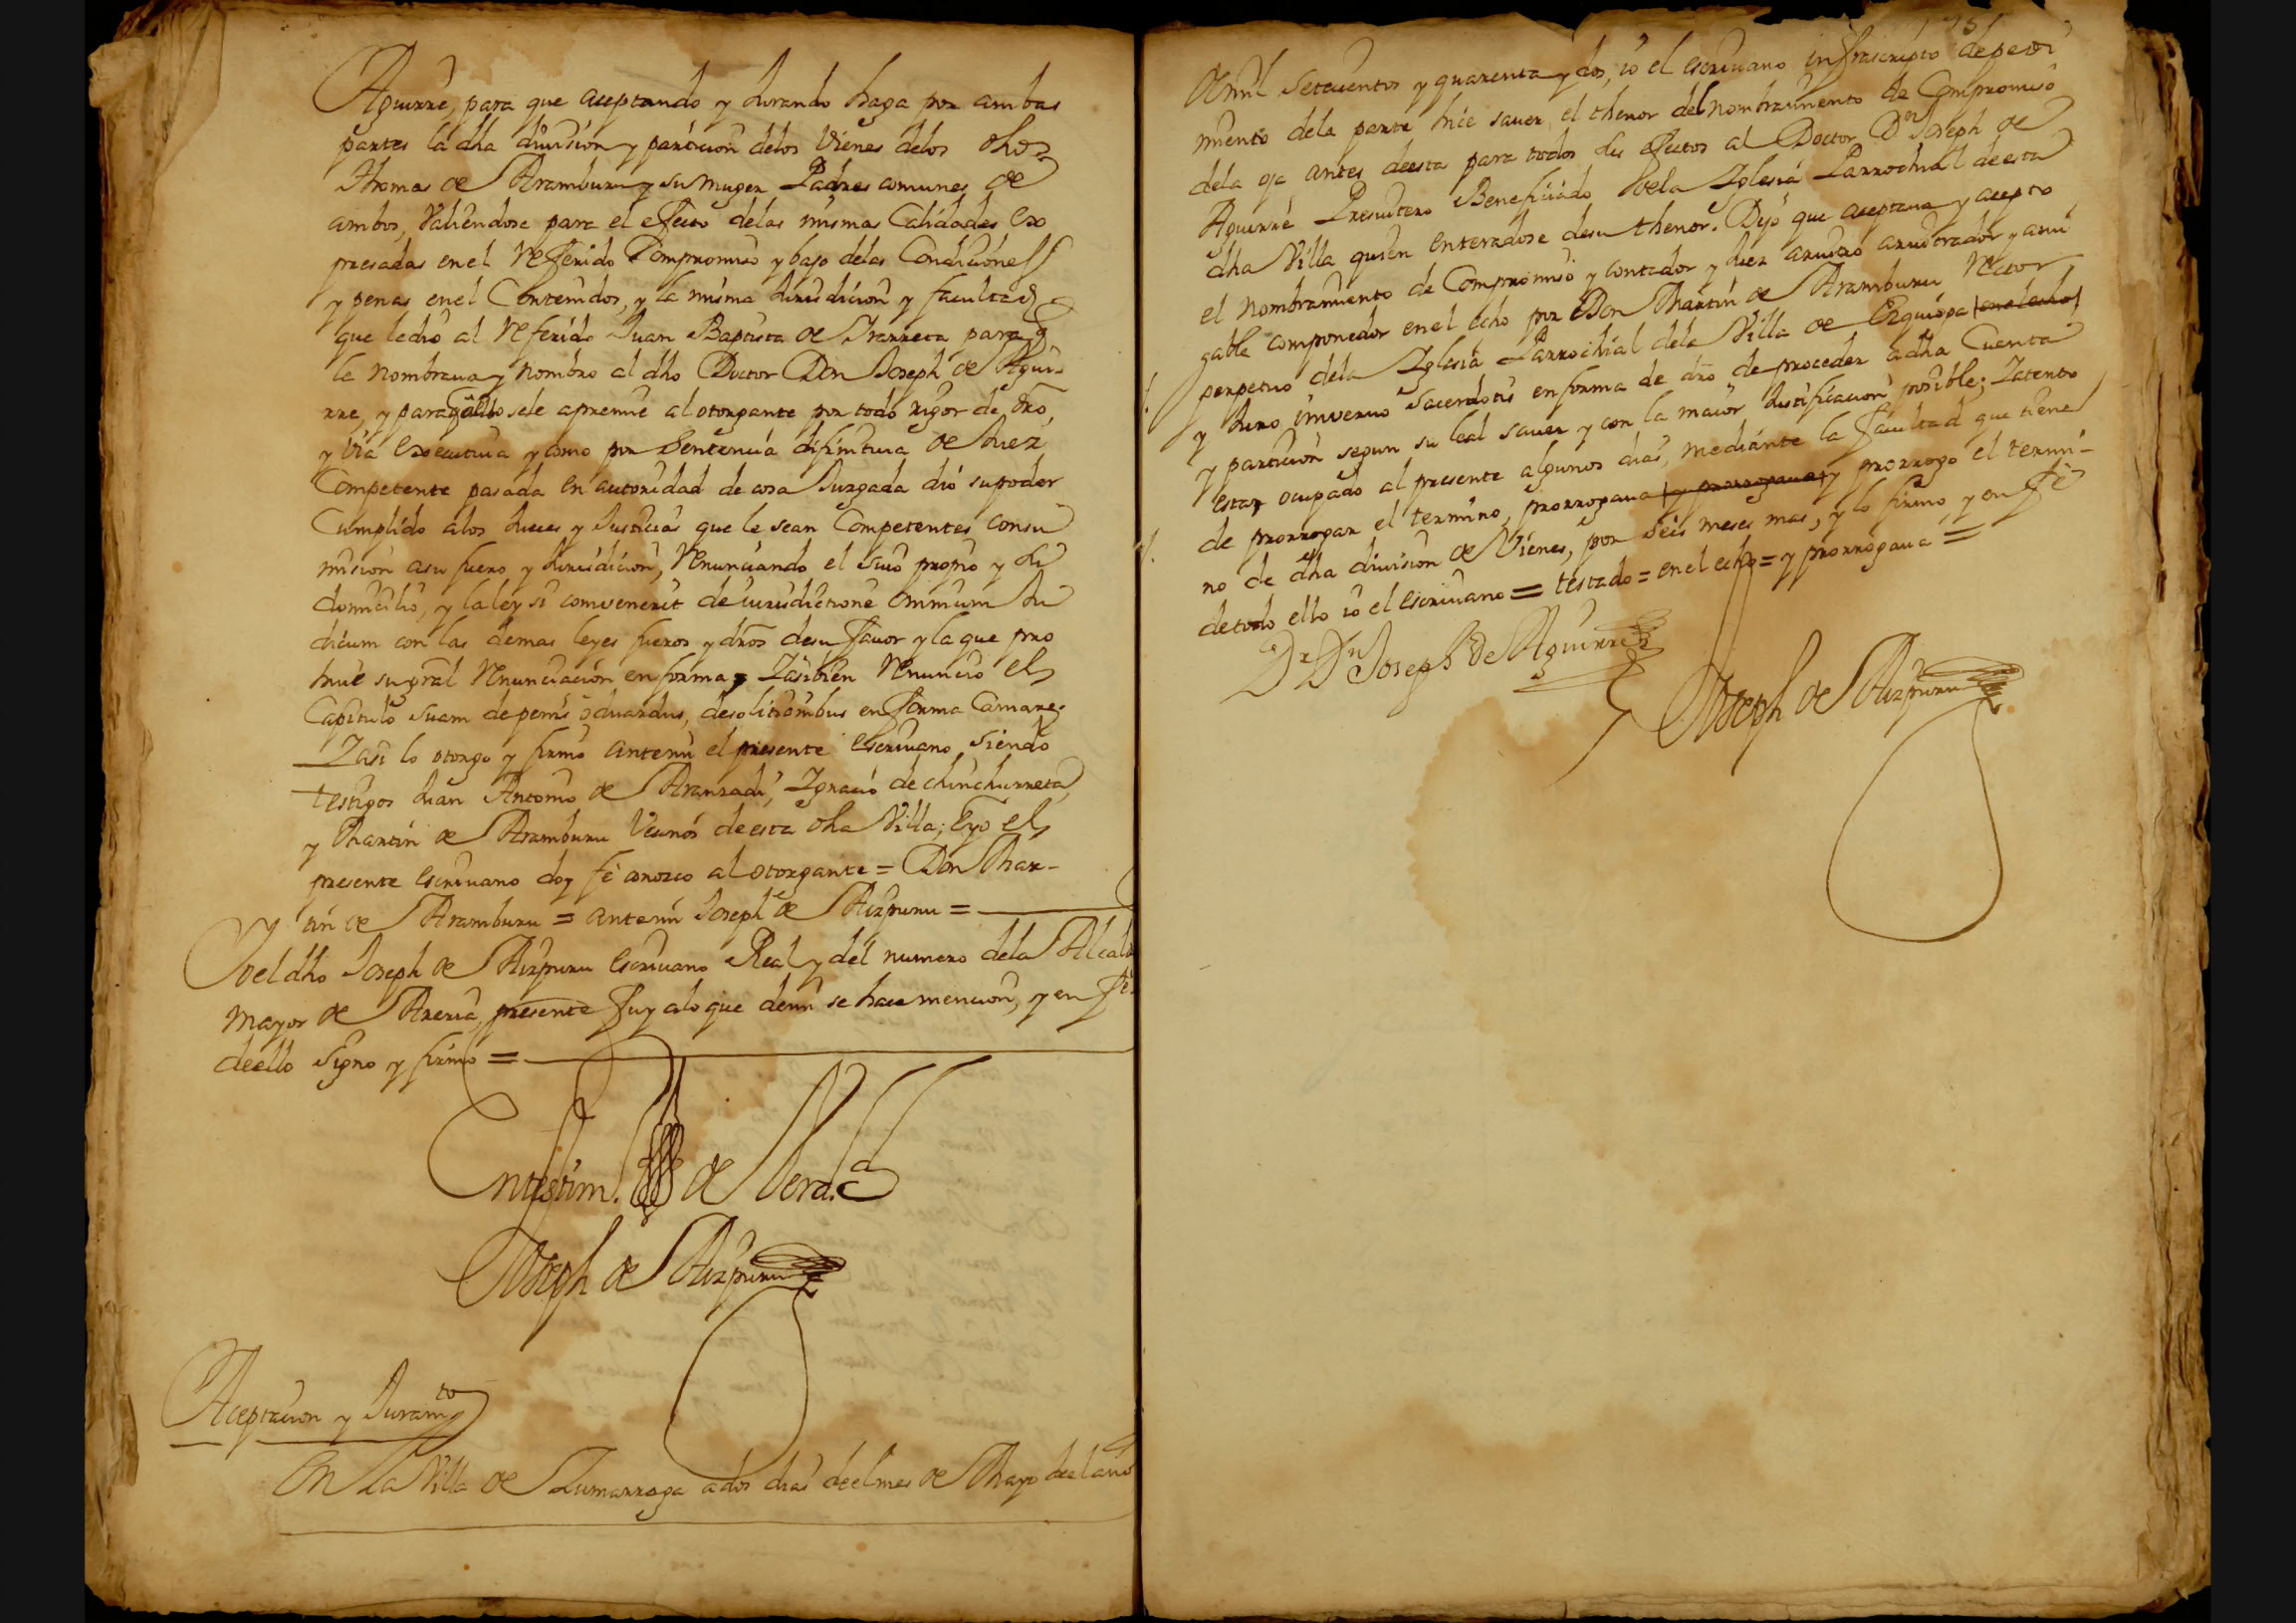 Aguirre, para que aceptando y Jurando haga por ambas
partes la dha diuision y particion delos Vienes delos dhos
Thomas de Aramburu y su muger Padres comunes de
ambos, Valiendose para el efecto delas mismas Calidades Ex
presadas en el Referido Compromiso y bajo delas Condiciones
y penas en el Contenidos, y la misma Jurisdicion y facultad
que le dio al Referido Juan Baptista de Irarreta para q
le Nombraua y Nombro al dho Doctor Don Joseph de Aguir-
rre, y para q̃ a ello se le apremie al otorgante por todo rigor de dro,
y via Executiua y como por Sentencia difinitiua de Juez
Competente pasada en autoridad de cosa Juzgada dió su poder
Cumplido alos Jueces y Justicias que le sean Competentes con su
mision a su fuero y Jurisdicion, Renunciando el suio propio y su
domicilio, y la ley si conuenerit de iurisdictione omnium Ju
dicum con las demas leyes fueros y dros de su fauor y la que pro
hiue su gral Renunciacion en forma, Y asibien Renuncio el
Capitulo suam de penis oduardus, de solutionibus en forma Camare.
Y asi lo otorgo y firmo ante mi el presente Escriuano, Siendo
testigos Juan Antonio de Aranzadi, Ignacio de chinchurreta,
y Martin de Aramburu Vecinos de esta dha Villa; E yo el
presente escriuano doy fe conozco al otorgante = Don Mar-
tin de Aramburu = ante mi Joseph de Aizpuru =
Yo el dho Joseph de Aizpuru escriuano Real y del numero dela Alcald
mayor de Areria, presente fuy alo que de mi se hace mencion, y en fe
de ello Signo y firmo =
En testim. de Verd.
Joseph de Aizpuru
Aceptacion y Juram.to
En La Villa de Zumarraga a dos dias de el mes de Mayo de el año
de mil Setecientos y quarenta y dos, io el escriuano infrascripto de pedi
miento dela parte hice sauer el thenor del nombramiento de Compromiso
dela oja antes de esta para todos sus efectos al Doctor Dn Joseph de
Aguirre Presuitero Beneficiado dela Iglesia Parrochial de esta
dha Villa quien enteradose de su thenor. Dijo que aceptaua y acepto
el nombramiento de Compromiso y contador y Juez aruitro aruitrador y ami
gable componedor en el echo por Don Martin de Aramburu Rector
perpetuo dela Iglesia Parrochial dela Villa de Ezquioga en el echo
y Juro in uerbo Sacerdotis en forma de dro de proceder a dha Cuenta
y particion segun su leal sauer y con la maior Justificacion posible; Y atento
estar ocupado al presente algunos dias, mediante la facultad que tiene
de prorrogar el termino, prorrogaua y prorrogaua y prorrogo el termi-
no de dha diuision de Vienes, por seis meses mas, y lo firmo y en fe
de todo ello io el escriuano = testado = en el echo = y prorrogaua =
Dr Dn Joseph de Aguirre
Joseph de Aizpuru